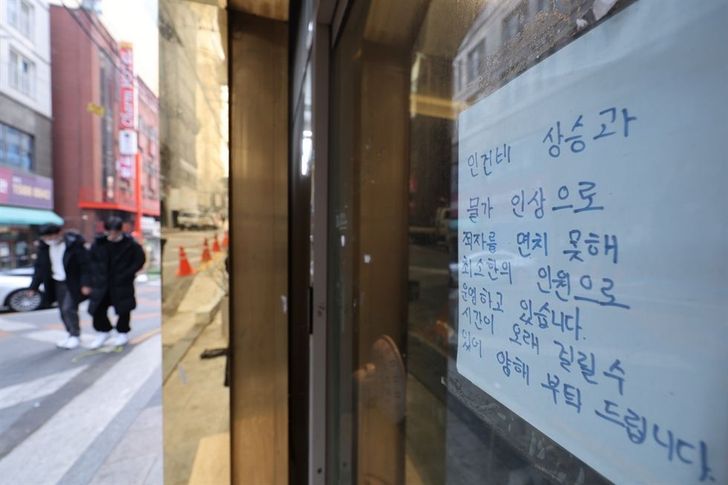 인건비 상승과
물가 인상으로
적자를 면치 못해
최소한의 인원으로
운영하고 있습니다.
시간이 오래 걸릴 수
있어 양해 부탁 드립니다.